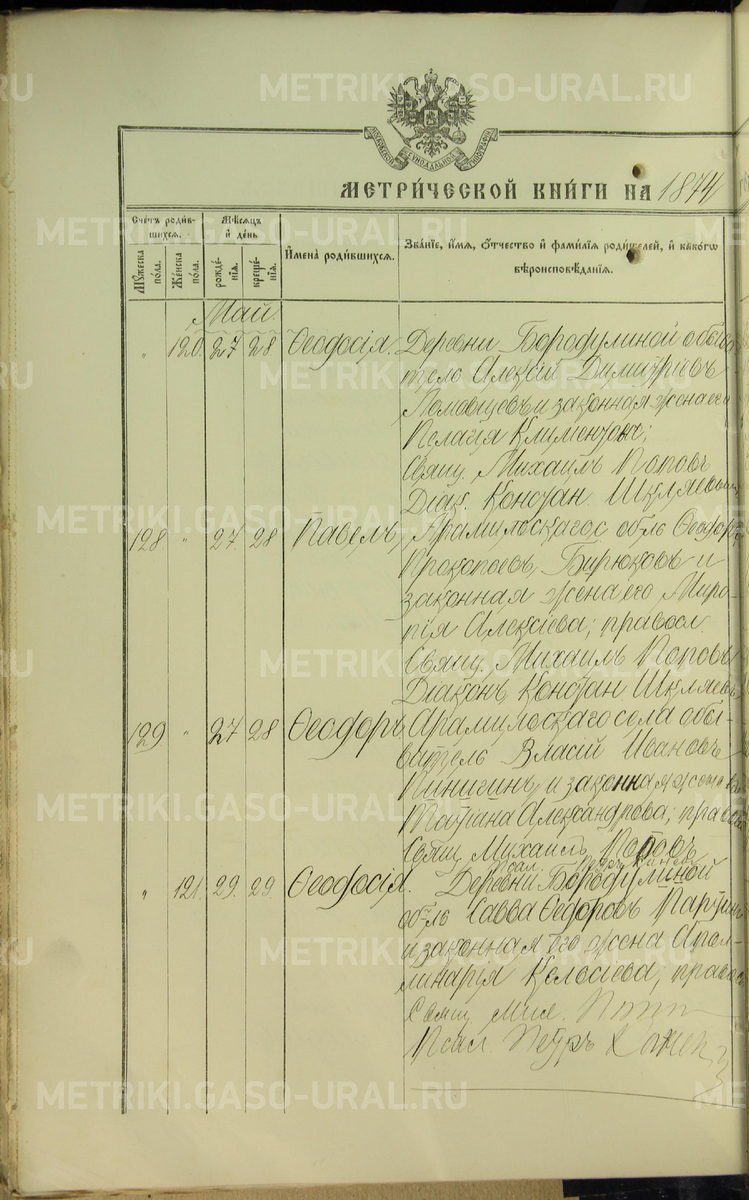 МЕТРИ́ЧЕСКОЙ КНИ́ГИ НА 1874
Сче́тъ роди́вшихся.
Му́жеска пола.
Же́нска по́ла.
Мѣ́сяцъ и де́нь
рожде́нія.
креще́нія.
И҆мена̀ роди́вшихся.
Зва́ніе, и҆́мя, ѻ҆́тчество и҆ фами́лія роди́телей, и҆ како́гѡ вѣроисповѣ́данія.
Май.
" 120. 27 28. Ѳеодосія. Деревни Бородулиной обыва
тель Алексій Димитріевъ
и законная жена его
Пелагія Климентова;
Свящ. Михаилъ Поповъ
Діак. Констан. Шкляевъ
128 " 27. 28 Павелъ, Арамильскаго с. об-ль Ѳеодоръ
Прокопьевъ Бирюковъ и
законная жена его Миро-
пія Алексіева; правосл.
Свящ. Михаилъ Поповъ
Діаконъ Констан Шкляевъ
129 " 27 28 Ѳеодоръ Арамильскаго села обы-
ватель Власій Ивановъ
Пинигинъ и законная жена его
Татіана Александрова; правос
Свящ. Михаилъ Поповъ
Псал. Петръ
" 121. 29. 29. Ѳеодосія. Деревни Бородулиной
об-ль Савва Ѳедоровъ
и законная его жена Апол-
линарія Келсіева, правос
Свящ. Мих.
Псал. Петръ
METRIKI.GASO-URAL.RU